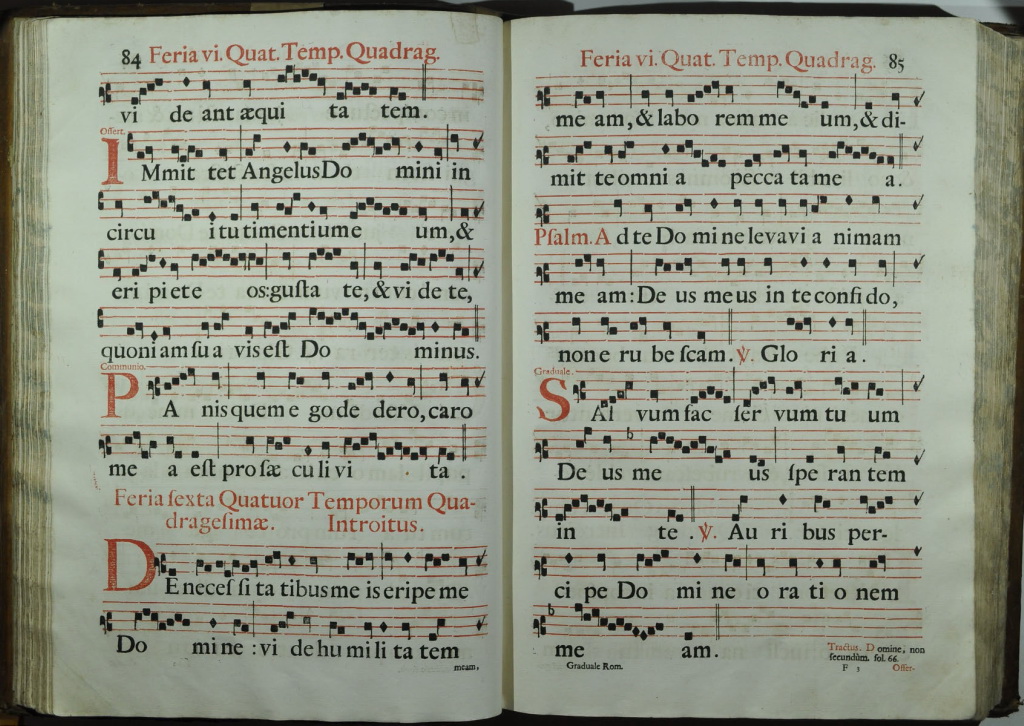 84 Feria vi. Quat. Temp. Quadrag.
vi de ant æqui ta tem.
Offert.
IMmit tet Angelus Do mini in
circu i tu timentium e um, &
eri piet e os: gusta te, & vi de te,
quoni am su a vis est Do minus.
Communio.
PA nis quem e go de dero, caro
me a est pro sæ cu li vi ta.
Feria sexta Quatuor Temporum Qua-
dragesimæ. Introitus.
DE neces si ta tibus me is eripe me
Do mi ne: vi de hu mi li ta tem
meam,
Feria vi. Quat. Temp. Quadrag. 85
me am, & labo rem me um, & di-
mit te omni a pecca ta me a.
Psalm. A d te Do mi ne levavi a nimam
me am: De us me us in te confi do,
non e ru be scam. ℣. Glo ri a.
Graduale.
SAl vum fac ser vum tu um
De us me us spe ran tem
in te. ℣. Au ri bus per-
ci pe Do mi ne o ra ti o nem
me am.
Tractus. D omine, non
secundùm. fol. 66.
Graduale Rom. F 3 Offer-